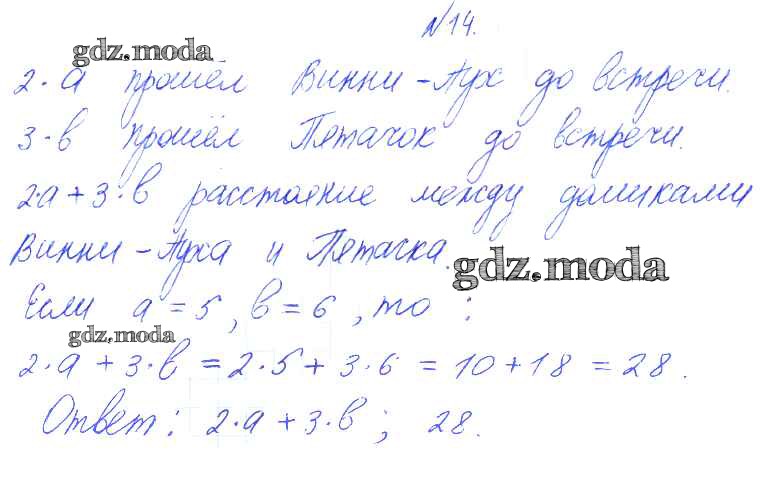 N14.
gdz.moda
2·a прошёл Винни-Пух до встречи.
3·в прошёл Пятачок до встречи.
2·a+3·в расстояние между домиками
Винни-Пуха и Пятачка.
gdz.moda
Если a=5, в=6, то:
gdz.moda
2·a+3·в=2·5+3·6=10+18=28.
Ответ: 2·a+3·в; 28.